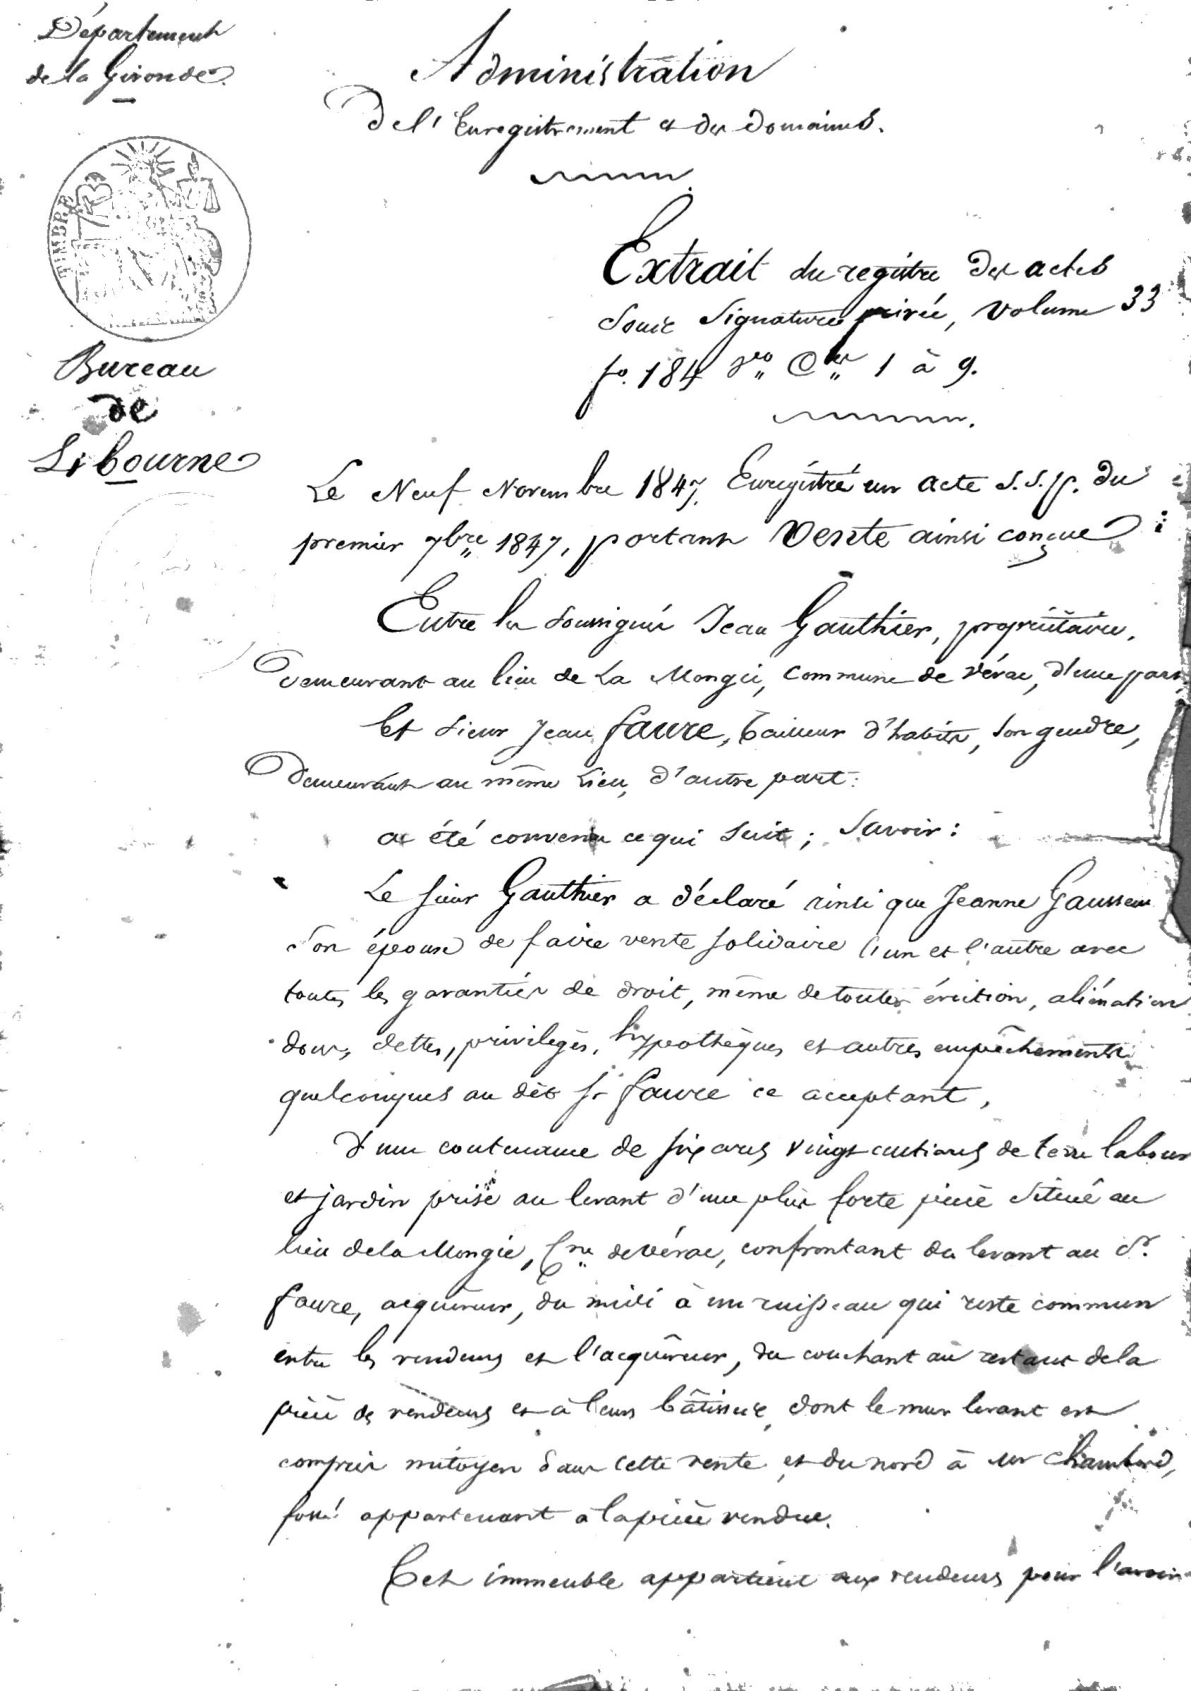 Département
de la Gironde.
Administration
De l'Enregistrement et des Domaines.
TIMBRE
Extrait du registre des actes
Sous Signatures privée, volume 33
fo. 184 Vo Ces 1 à 9.
Bureau
de
Libourne
Le Neuf Novembre 1847, Enregistré un acte S.S.p. du
premier 7bre 1847, portant Vente ainsi conçue :
Entre les Soussignés Jean Gauthier, propriétaire,
demeurant au lieu de La Mongie, commune de Vérac, d'une part,
Et Sieur Jean Faure, tailleur d'habits, son gendre,
Demeurant au même Lieu, d'autre part :
a été convenu ce qui Suit ; Savoir :
Le sieur Gauthier a déclaré ainsi que Jeanne
Son épouse de faire vente solidaire l'un et l'autre avec
toutes les garanties de droit, même de toutes éviction, aliénation
dons, dettes, privilèges, hypothèques et autres empêchements
quelconques au dit Sr Faure ce acceptant,
D'une contenance de six ares vingt centiares de terre labour
et jardin prise au levant d'une plus forte pièce Située au
lieu de la Mongie, Cne de Vérac, confrontant du levant au Sr
Faure, acquéreur, du midi à un ruisseau qui reste commun
entre les vendeurs et l'acquéreur, du couchant au restant de la
pièce des vendeurs et à leurs bâtisses, dont le mur levant est
compris mitoyen dans cette vente et du nord à
fossé appartenant à la pièce vendue.
Cet immeuble appartient aux vendeurs pour l'avoir